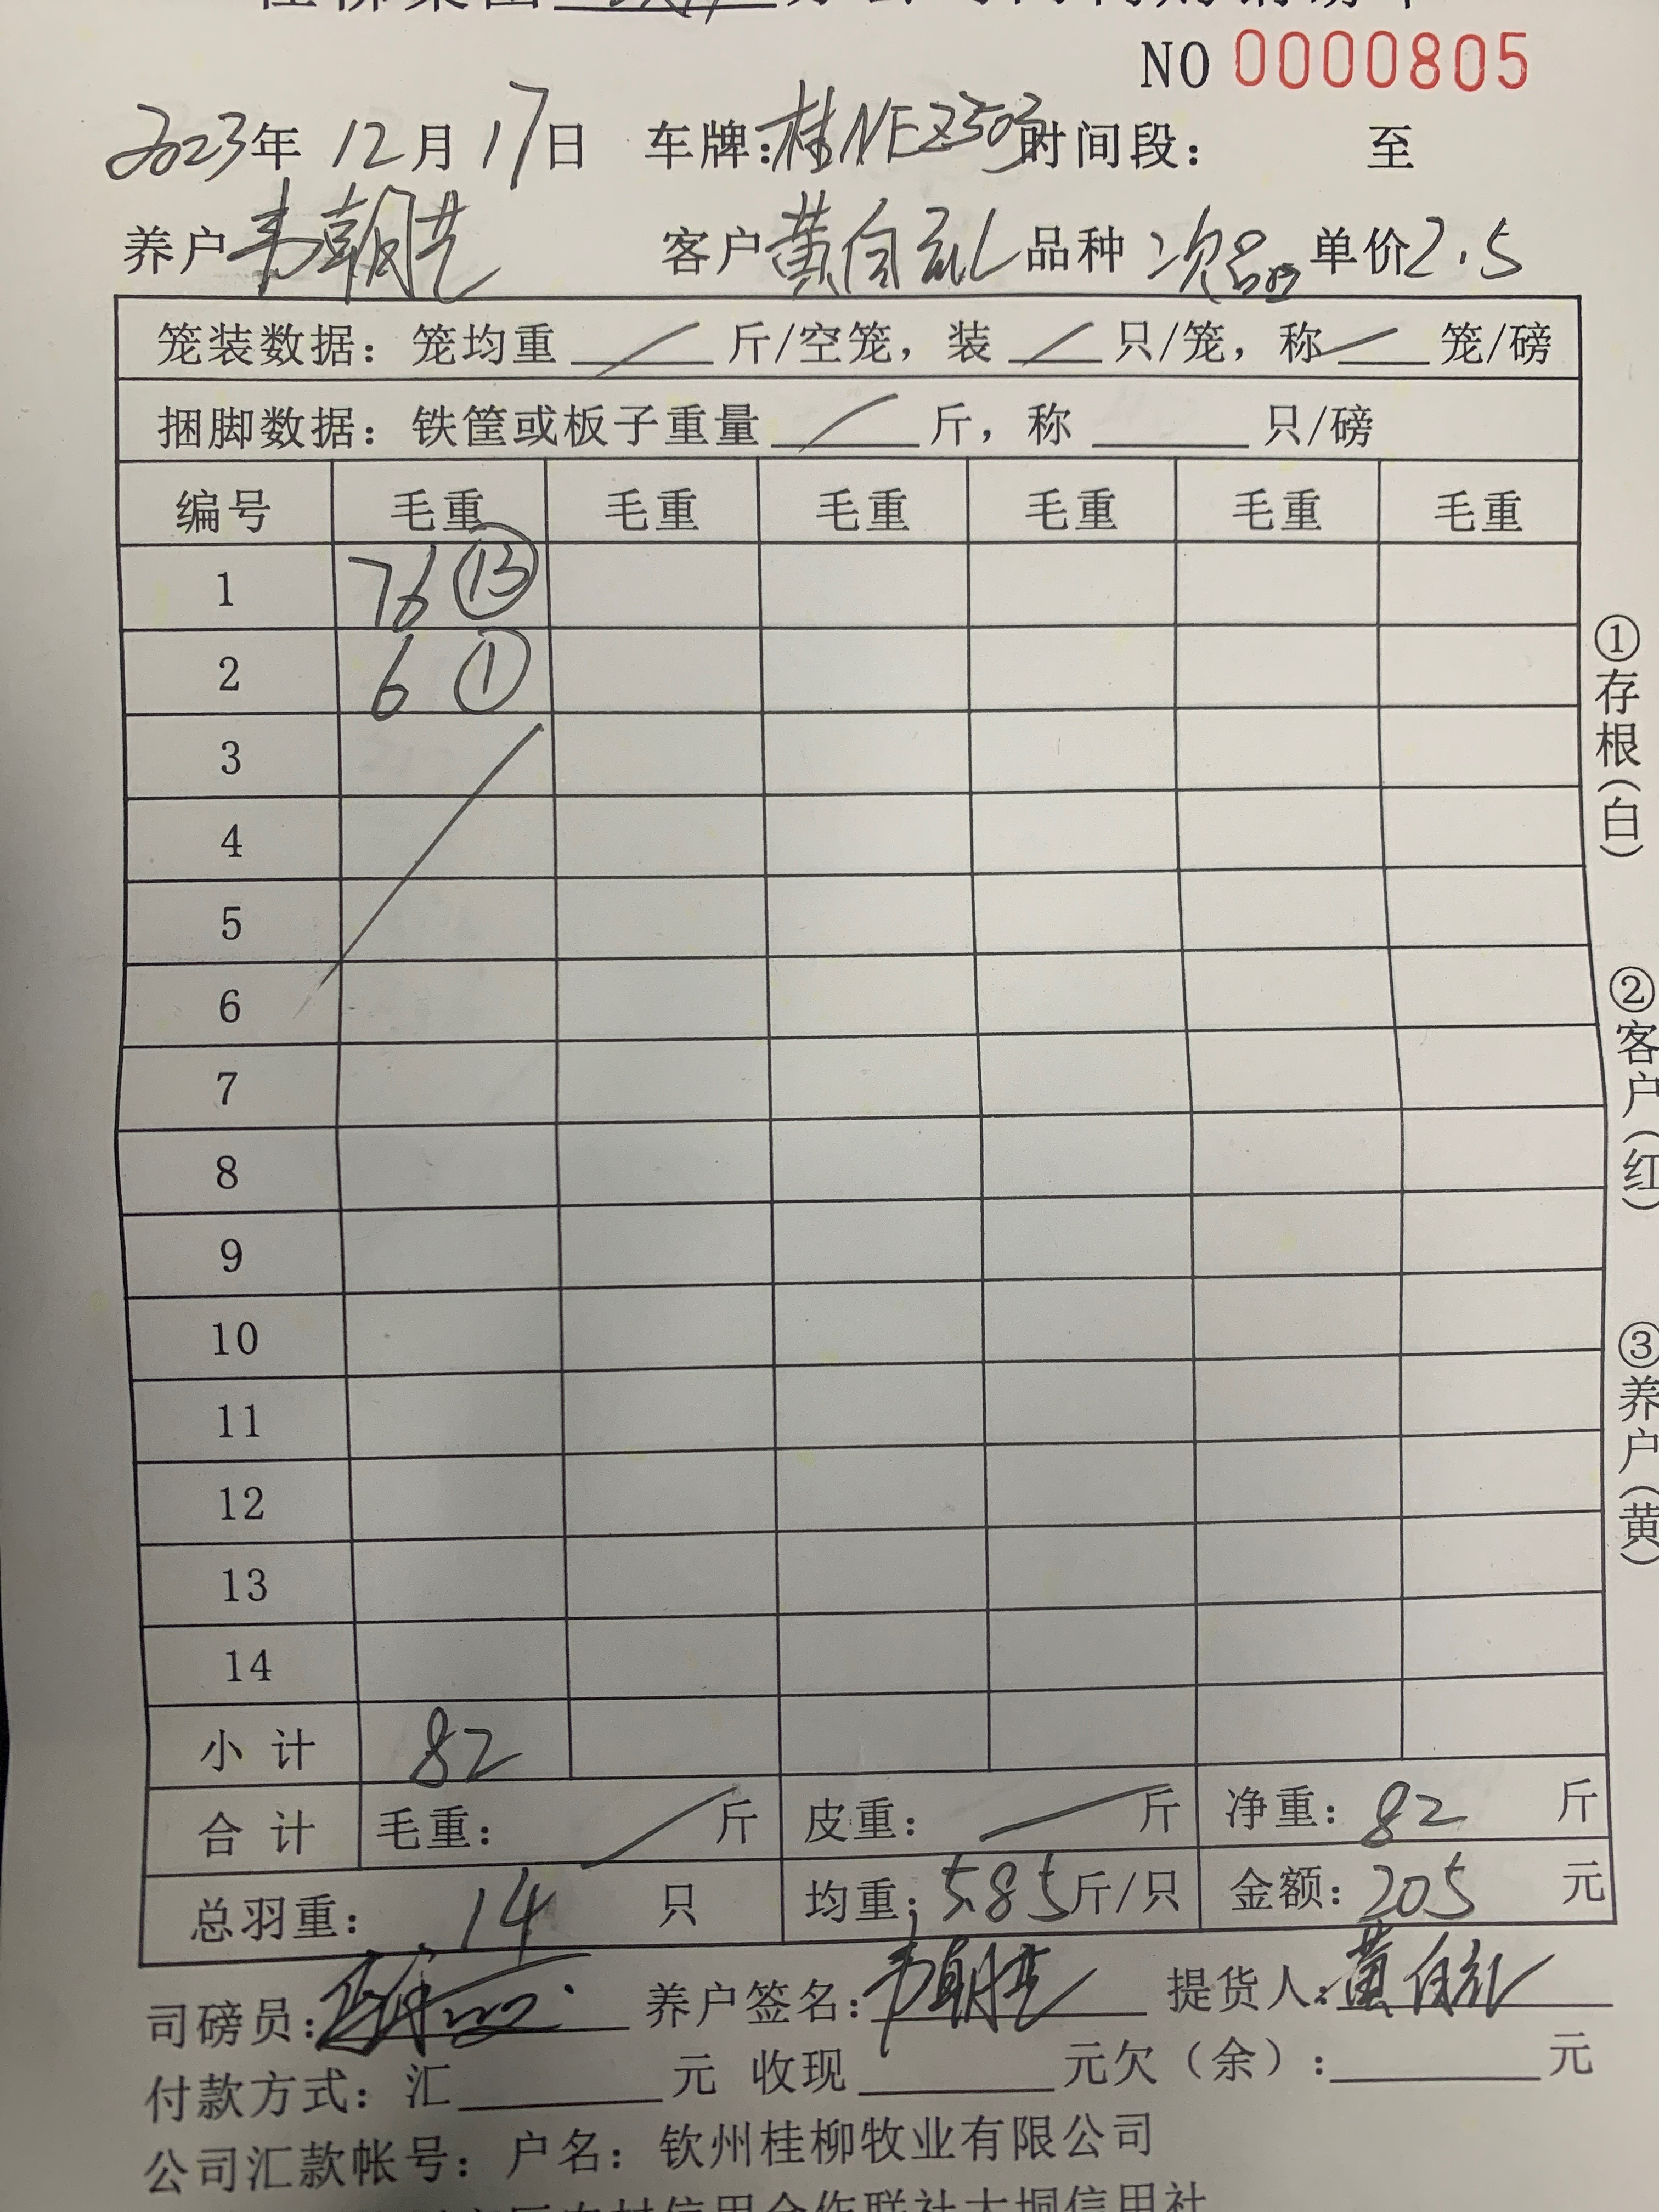 NO 0000805
2023年 12月 17日 车牌:桂NEZ503 时间段: 至
养户韦朝 客户黄自 品种 次品 单价2.5
笼装数据: 笼均重 / 斤/空笼, 装 / 只/笼, 称 / 笼/磅
捆脚数据: 铁筐或板子重量 / 斤, 称 只/磅
编号 毛重 毛重 毛重 毛重 毛重 毛重
1 76 ⑬
2 6 ①
3
4
5
6
7
8
9
10
11
12
13
14
小计 82
合计 毛重: / 斤 皮重: / 斤 净重: 82 斤
总羽重: 14 只 均重: 5.85斤/只 金额: 205 元
司磅员: 养户签名: 韦朝 提货人: 黄自
付款方式: 汇 元 收现 元欠(余): 元
公司汇款帐号: 户名: 钦州桂柳牧业有限公司
①存根(白)
②客户(红)
③养户(黄)